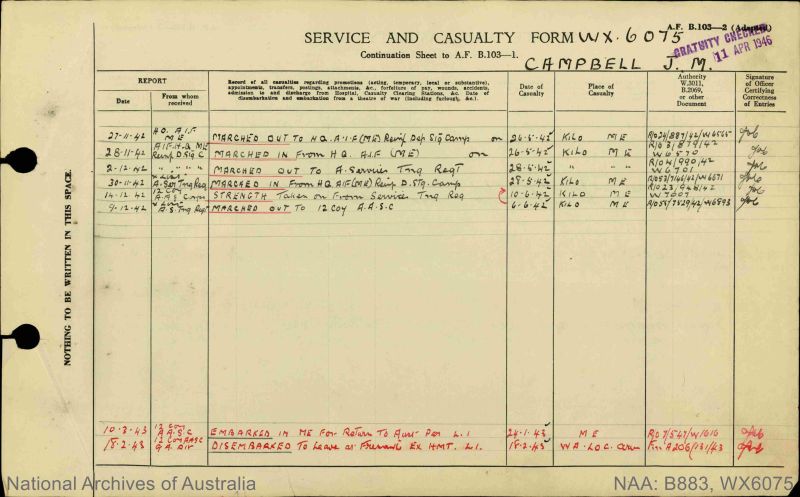 A.F. B.103—2 (Adapted)
SERVICE AND CASUALTY FORM WX.6075
GRATUITY CHECKED
11 APR 1946
Continuation Sheet to A.F. B.103—1.
CAMPBELL J. M.
REPORT
Date
From whom received
Record of all casualties regarding promotions (acting, temporary, local or substantive), appointments, transfers, postings, attachments, &c., forfeiture of pay, wounds, accidents, admission to and discharge from Hospital, Casualty Clearing Stations, &c. Date of disembarkation and embarkation from a theatre of war (including furlough, &c.).
Date of Casualty
Place of Casualty
Authority W.3011, B.2069, or other Document
Signature of Officer Certifying Correctness of Entries
27-11-42 HQ. A.I.F ME MARCHED OUT TO HQ. A.I.F (ME) Reinf Dep Stg Camp on 26-5-42 KILO ME
28-11-42 A.I.F. H.Q ME MARCHED IN From HQ. AIF (ME) on 26-5-42 KILO ME
2-12-42 " " " MARCHED OUT TO A. Service Tng Regt 28-5-42 " " "
30-11-42 MARCHED IN From HQ AIF (ME) Reinf D. Stg. Camp 28-5-42 KILO ME
14-12-42 12 Coy A.A.S. Corps STRENGTH Taken on From Service Tng Reg 10-6-42 KILO ME
9-12-42 A.S. Tng Regt MARCHED OUT TO 12 Coy A.A.S.C 6-6-42 KILO ME
NOTHING TO BE WRITTEN IN THIS SPACE.
10-2-43 12 Coy A.A.S.C EMBARKED IN ME For Return To Aust Per L.1 24-1-43 ME
18-2-43 DISEMBARKED To Leave at Fremantle Ex HMT. L1. 18-2-43
National Archives of Australia
NAA: B883, WX6075